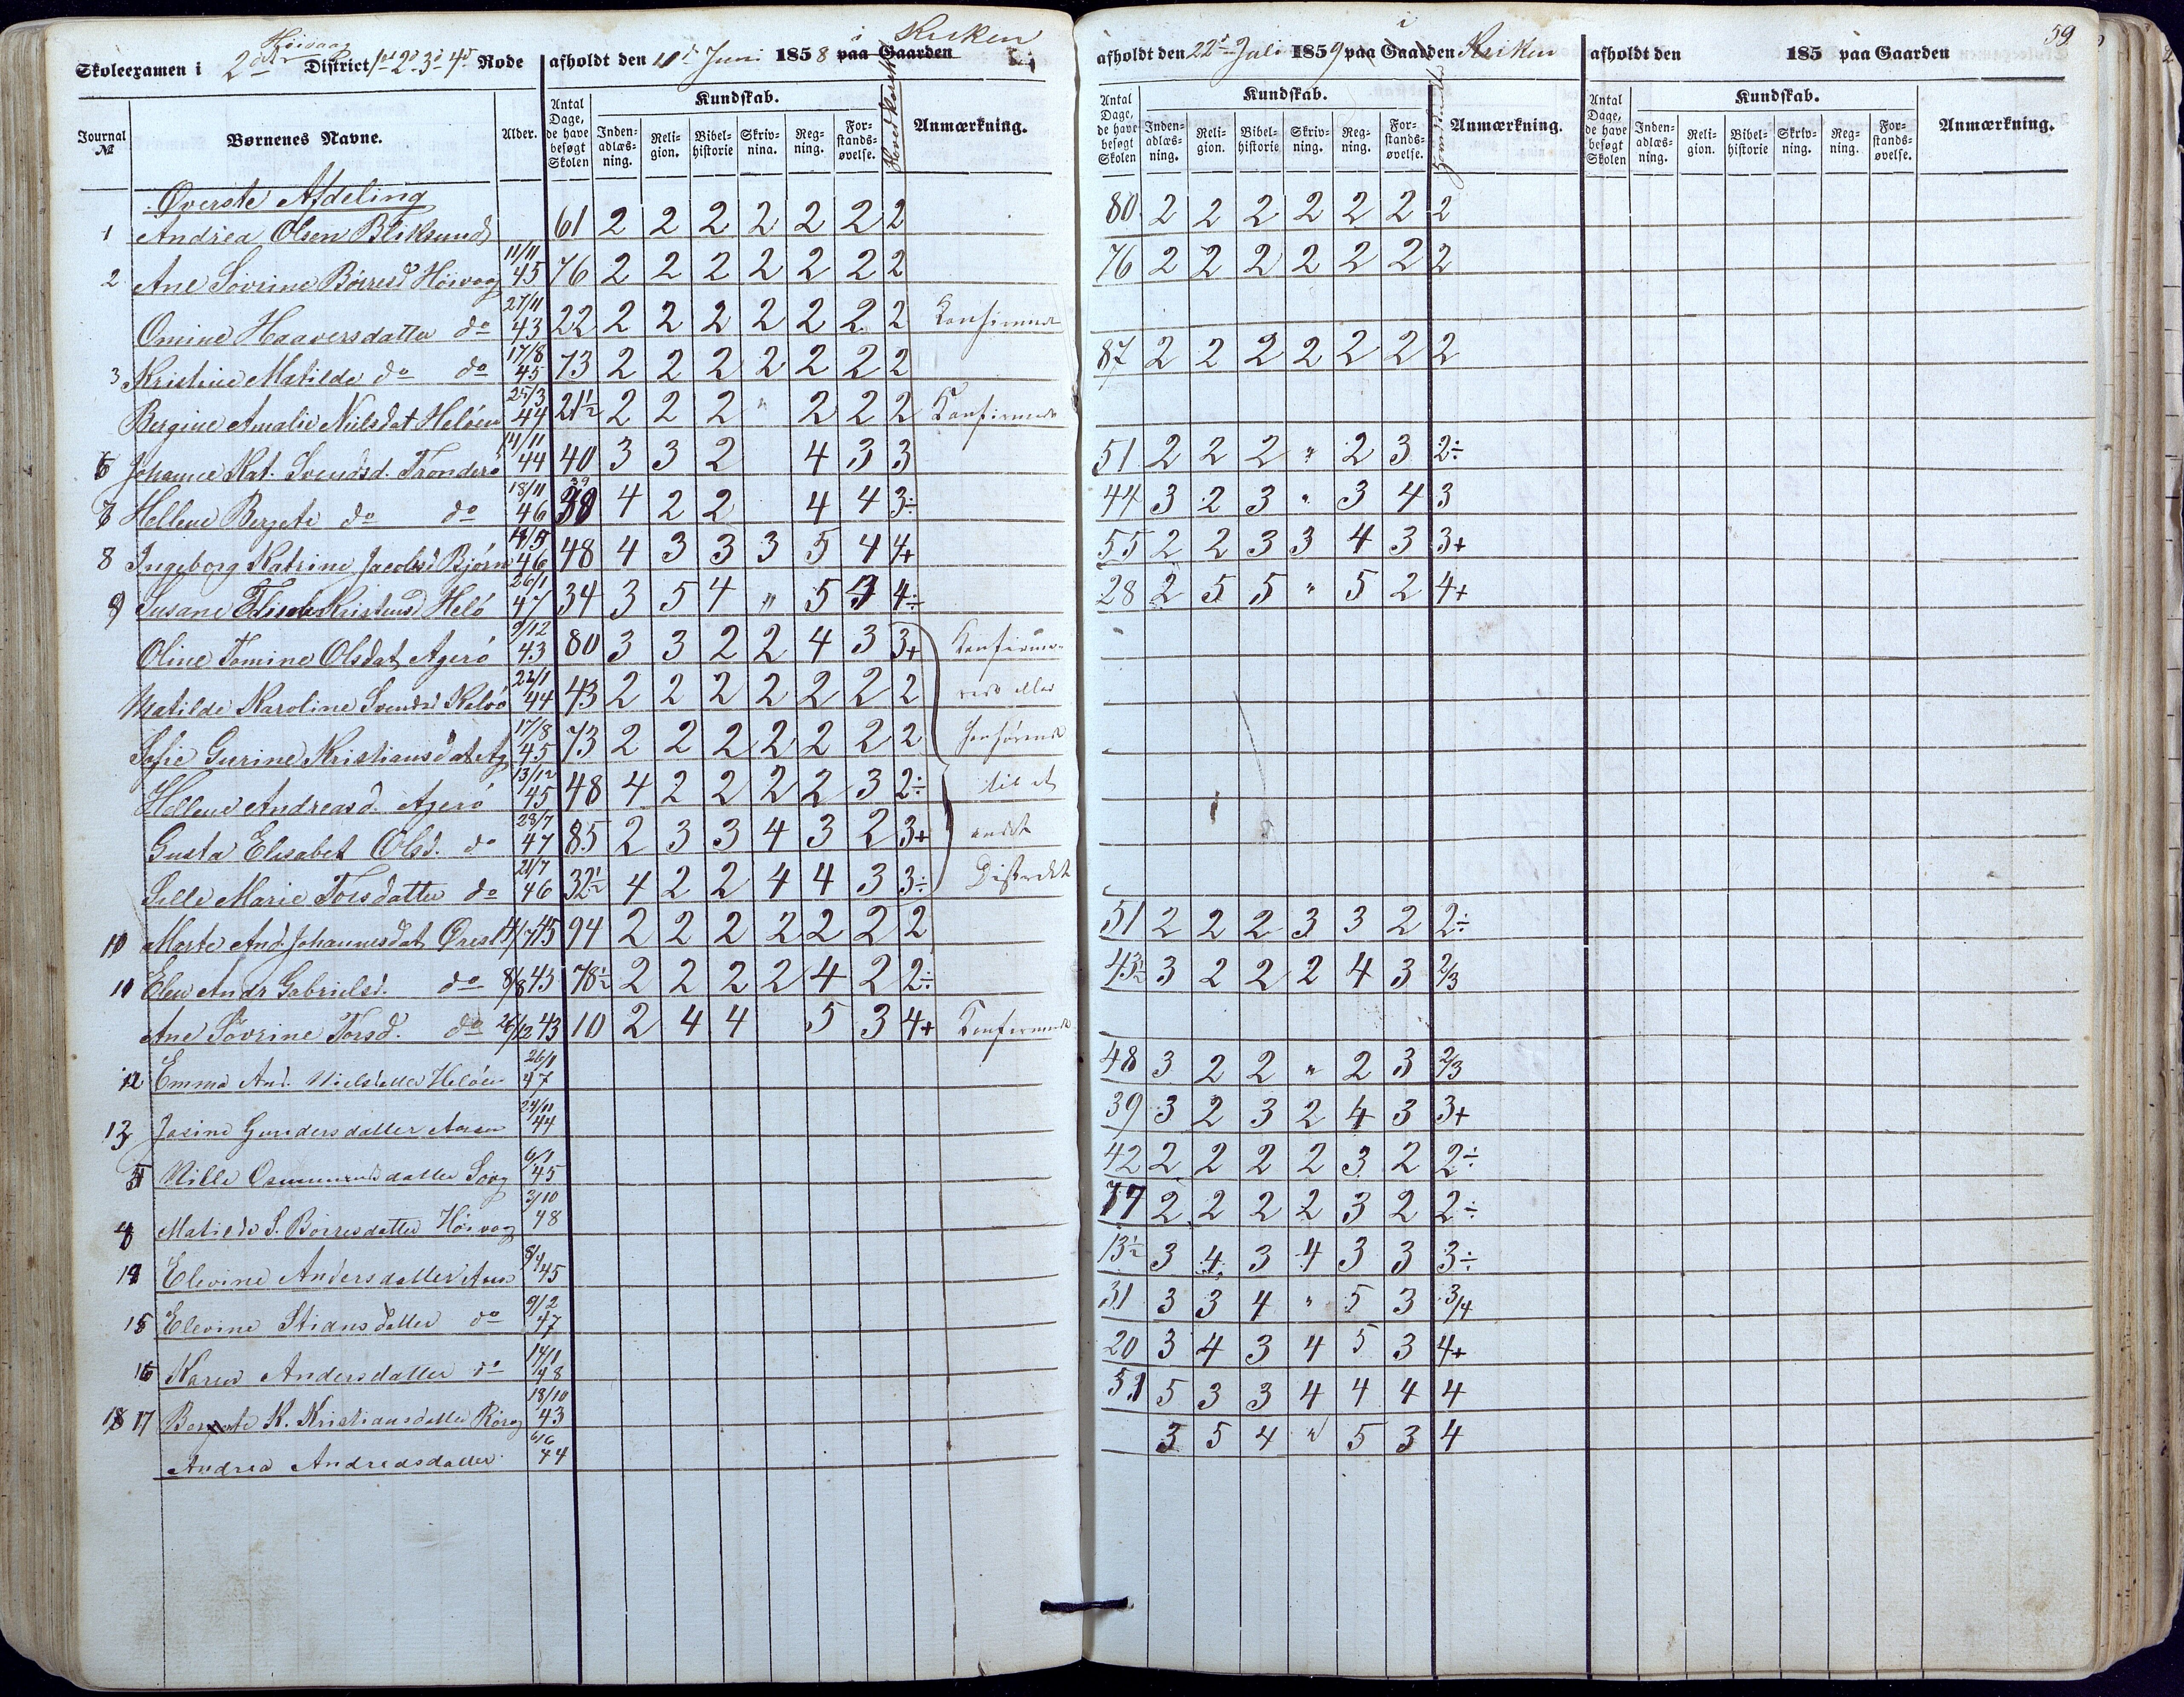 59
Høivaag i Kirken i
Skoleexamen i 2det District 1ste 2d 3d 4d Rode afholdt den 10de Juni 1858 paa Gaarden afholdt den 22d Juli 1859 paa Gaarden Kirken afholdt den 185 paa Gaarden
Journal № Børnenes Navne. Alder. Antal Dage, de have besøgt Skolen Kundskab. Inden-adlæs-ning. Reli-gion. Bibel-historie Skriv-nina. Reg-ning. For-stands-øvelse. Hovedkarakter Anmærkning. Antal Dage, de have besøgt Skolen Kundskab. Inden-adlæs-ning. Reli-gion. Bibel-historie Skriv-ning. Reg-ning. For-stands-øvelse. Anmærkning. Antal Dage, de have besøgt Skolen Kundskab. Inden-adlæs-ning. Reli-gion. Bibel-historie Skriv-ning. Reg-ning. For-stands-øvelse. Anmærkning.
Øverste Afdeling
1 Andrea Olsen Bliksund 61 2 2 2 2 2 2 2 80 2 2 2 2 2 2 2
2 Ane Sovrine Börresd Höivog 11/11 45 76 2 2 2 2 2 2 2 76 2 2 2 2 2 2 2
Omine Haaversdatter do 27/11 43 22 2 2 2 2 2 2 2 Konfirmeret
3 Kristine Matilde do do 17/8 45 73 2 2 2 2 2 2 2 87 2 2 2 2 2 2 2
Bergine Amalie Nielsdat Helöen 25/3 44 21½ 2 2 2 " 2 2 2 Konfirmeret
6 Johanne Kat. Svendsd. Tronderö 14/11 44 40 3 3 2 4 3 3 51 2 2 2 " 2 3 2÷
7 Hellene Bergete do do 18/11 46 39 4 2 2 4 4 3÷ 44 3 2 3 " 3 4 3
8 Ingeborg Katrine Jacobsd Bjørn 14/5 46 48 4 3 3 3 5 4 4+ 55 2 2 3 3 4 3 3+
9 Susane Kristensd Helö 26/1 47 34 3 5 4 " 5 3 4÷ 28 2 5 5 " 5 2 4+
Oline Tomine Olsdat Agerö 9/12 43 80 3 3 2 2 4 3 3+ Konfirme-
Matilde Karoline Svendsd Kalvö 22/1 44 43 2 2 2 2 2 2 2 rede eller
Sofie Gurine Kristiansdat Ag 17/8 45 73 2 2 2 2 2 2 2 henhörende
Hellene Andreasd. Agerö 13/12 45 48 4 2 2 2 2 3 2÷ til et
Gusta Elisabet Olsd. do 23/7 47 85 2 3 3 4 3 2 3+ andet
Sille Marie Torsdatter do 21/7 46 32½ 4 2 2 4 4 3 3÷ Distrikt
10 Marte And. Johannesdat Örest 14/7 45 94 2 2 2 2 2 2 2 51 2 2 2 3 3 2 2÷
11 Elen Andr Gabrielsd. do 8/8 43 78½ 2 2 2 2 4 2 2÷ 43½ 3 2 2 2 4 3 2/3
Ane Sövrine Torsd. do 26/12 43 10 2 4 4 5 3 4+ Konfirmeret
12 Emma And. Nielsdatter Helöen 26/1 47 48 3 2 2 " 2 3 2/3
13 Josine Gundersdatter Aasen 24/11 44 39 3 2 3 2 4 3 3+
5 Nille Osmundsdatter 6/1 45 42 2 2 2 2 3 2 2÷
4 Matilde S. Börresdatter Höivog 3/10 48 77 2 2 2 2 3 2 2÷
14 Elevine Andersdatter Aasen 8/4 45 13½ 3 4 3 4 3 3 3÷
15 Elevine Stiansdatter do 9/2 47 31 3 3 4 " 5 3 3/4
16 Karen Andersdatter do 14/1 48 20 3 4 3 4 5 3 4+
18 17 Bergete K. Kristiansdatter 18/10 43 51 5 3 3 4 4 4 4
Andrea Andreasdatter 6/6 44 3 5 4 " 5 3 4